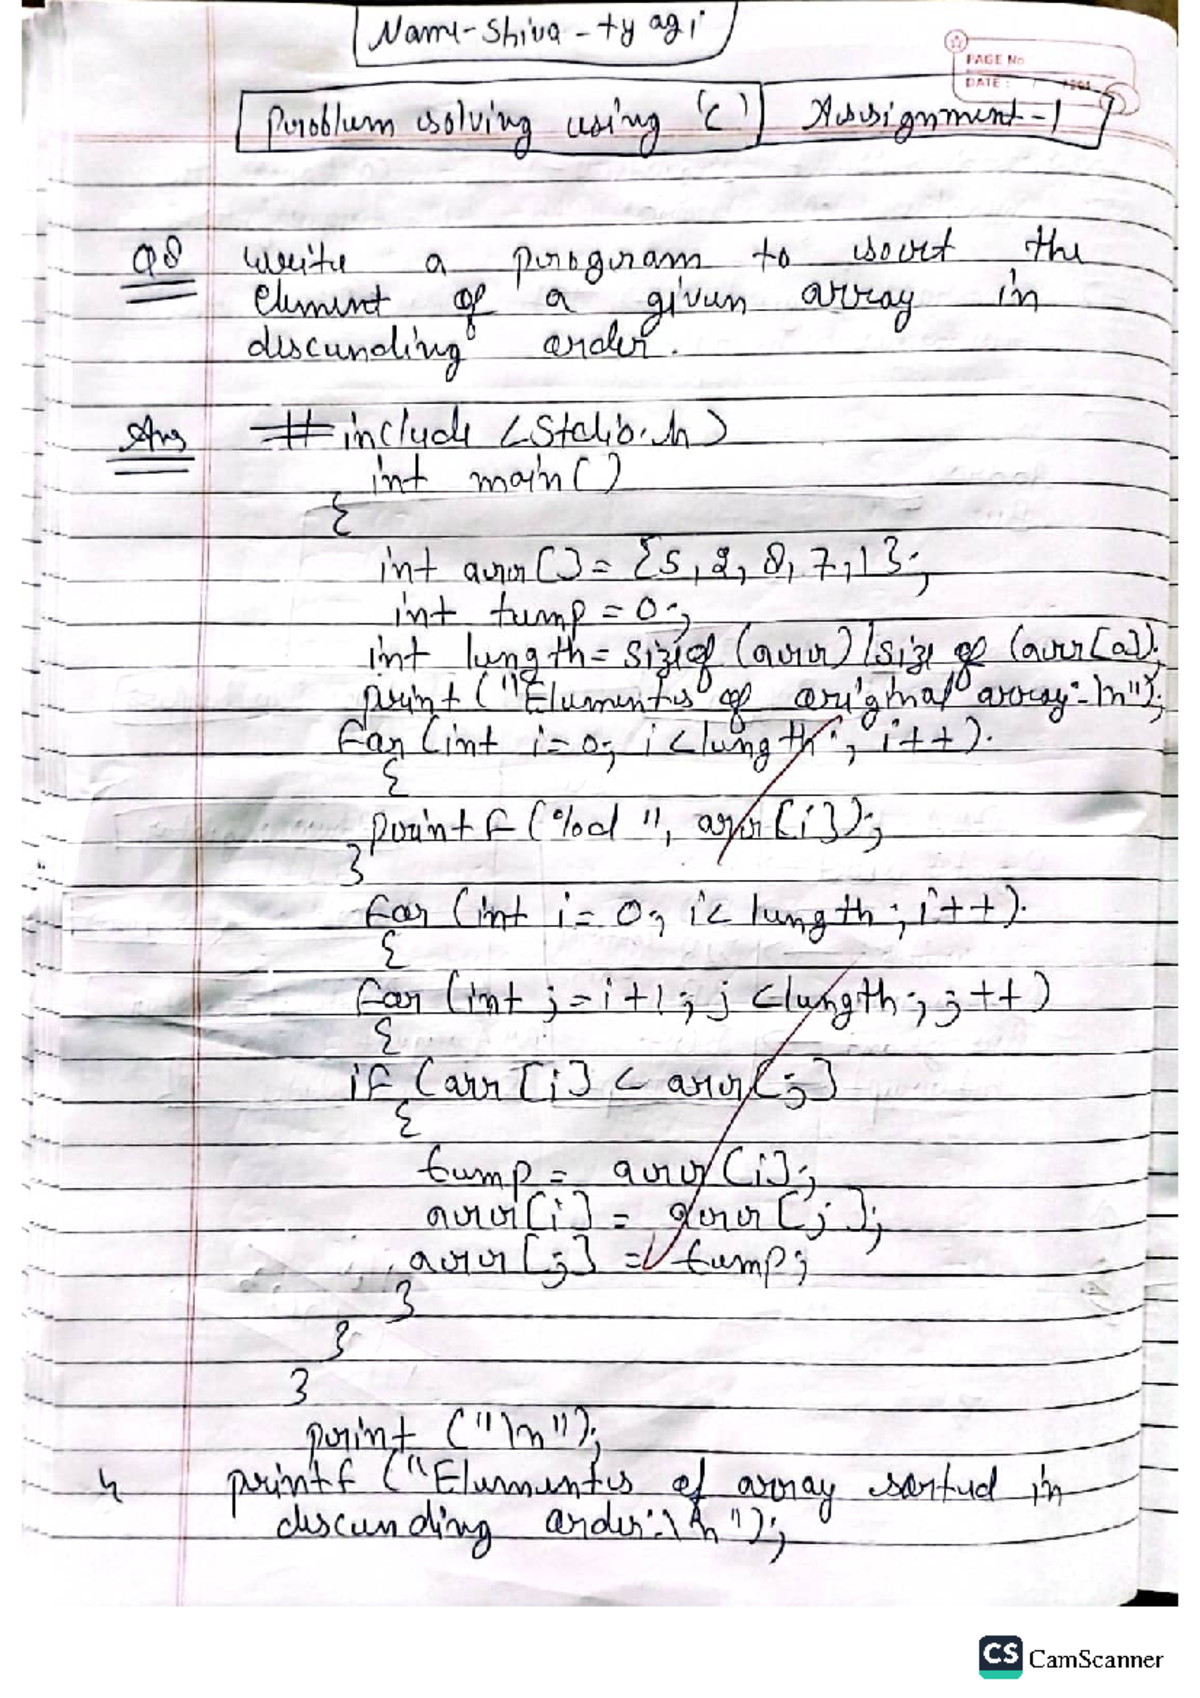 Name-Shiva-tyagi
PAGE No
DATE:
Problem solving using 'C' Assignment-1
Q8 write a program to sort the
element of a given array in
descending order.
Ans #include <Stdio.h>
int main()
{
int arr[]= {5,2,8,7,1};
int temp=0;
int length=sizeof(arr)/size of (arr[a]);
print("Elements of original array:-\n");
for(int i=0; i<length; i++).
{
printf(%d ", arr[i]);
}
for (int i= 0; i< length; i++).
{
for (int j=i+1; j<length; j++)
{
if (arr[i] < arr[j]
{
temp= arr[i];
arr[i]= arr[j];
arr[j]= temp;
}
}
}
print ("\n");
printf ("Elements of array sorted in
descending order:\n");
CS CamScanner